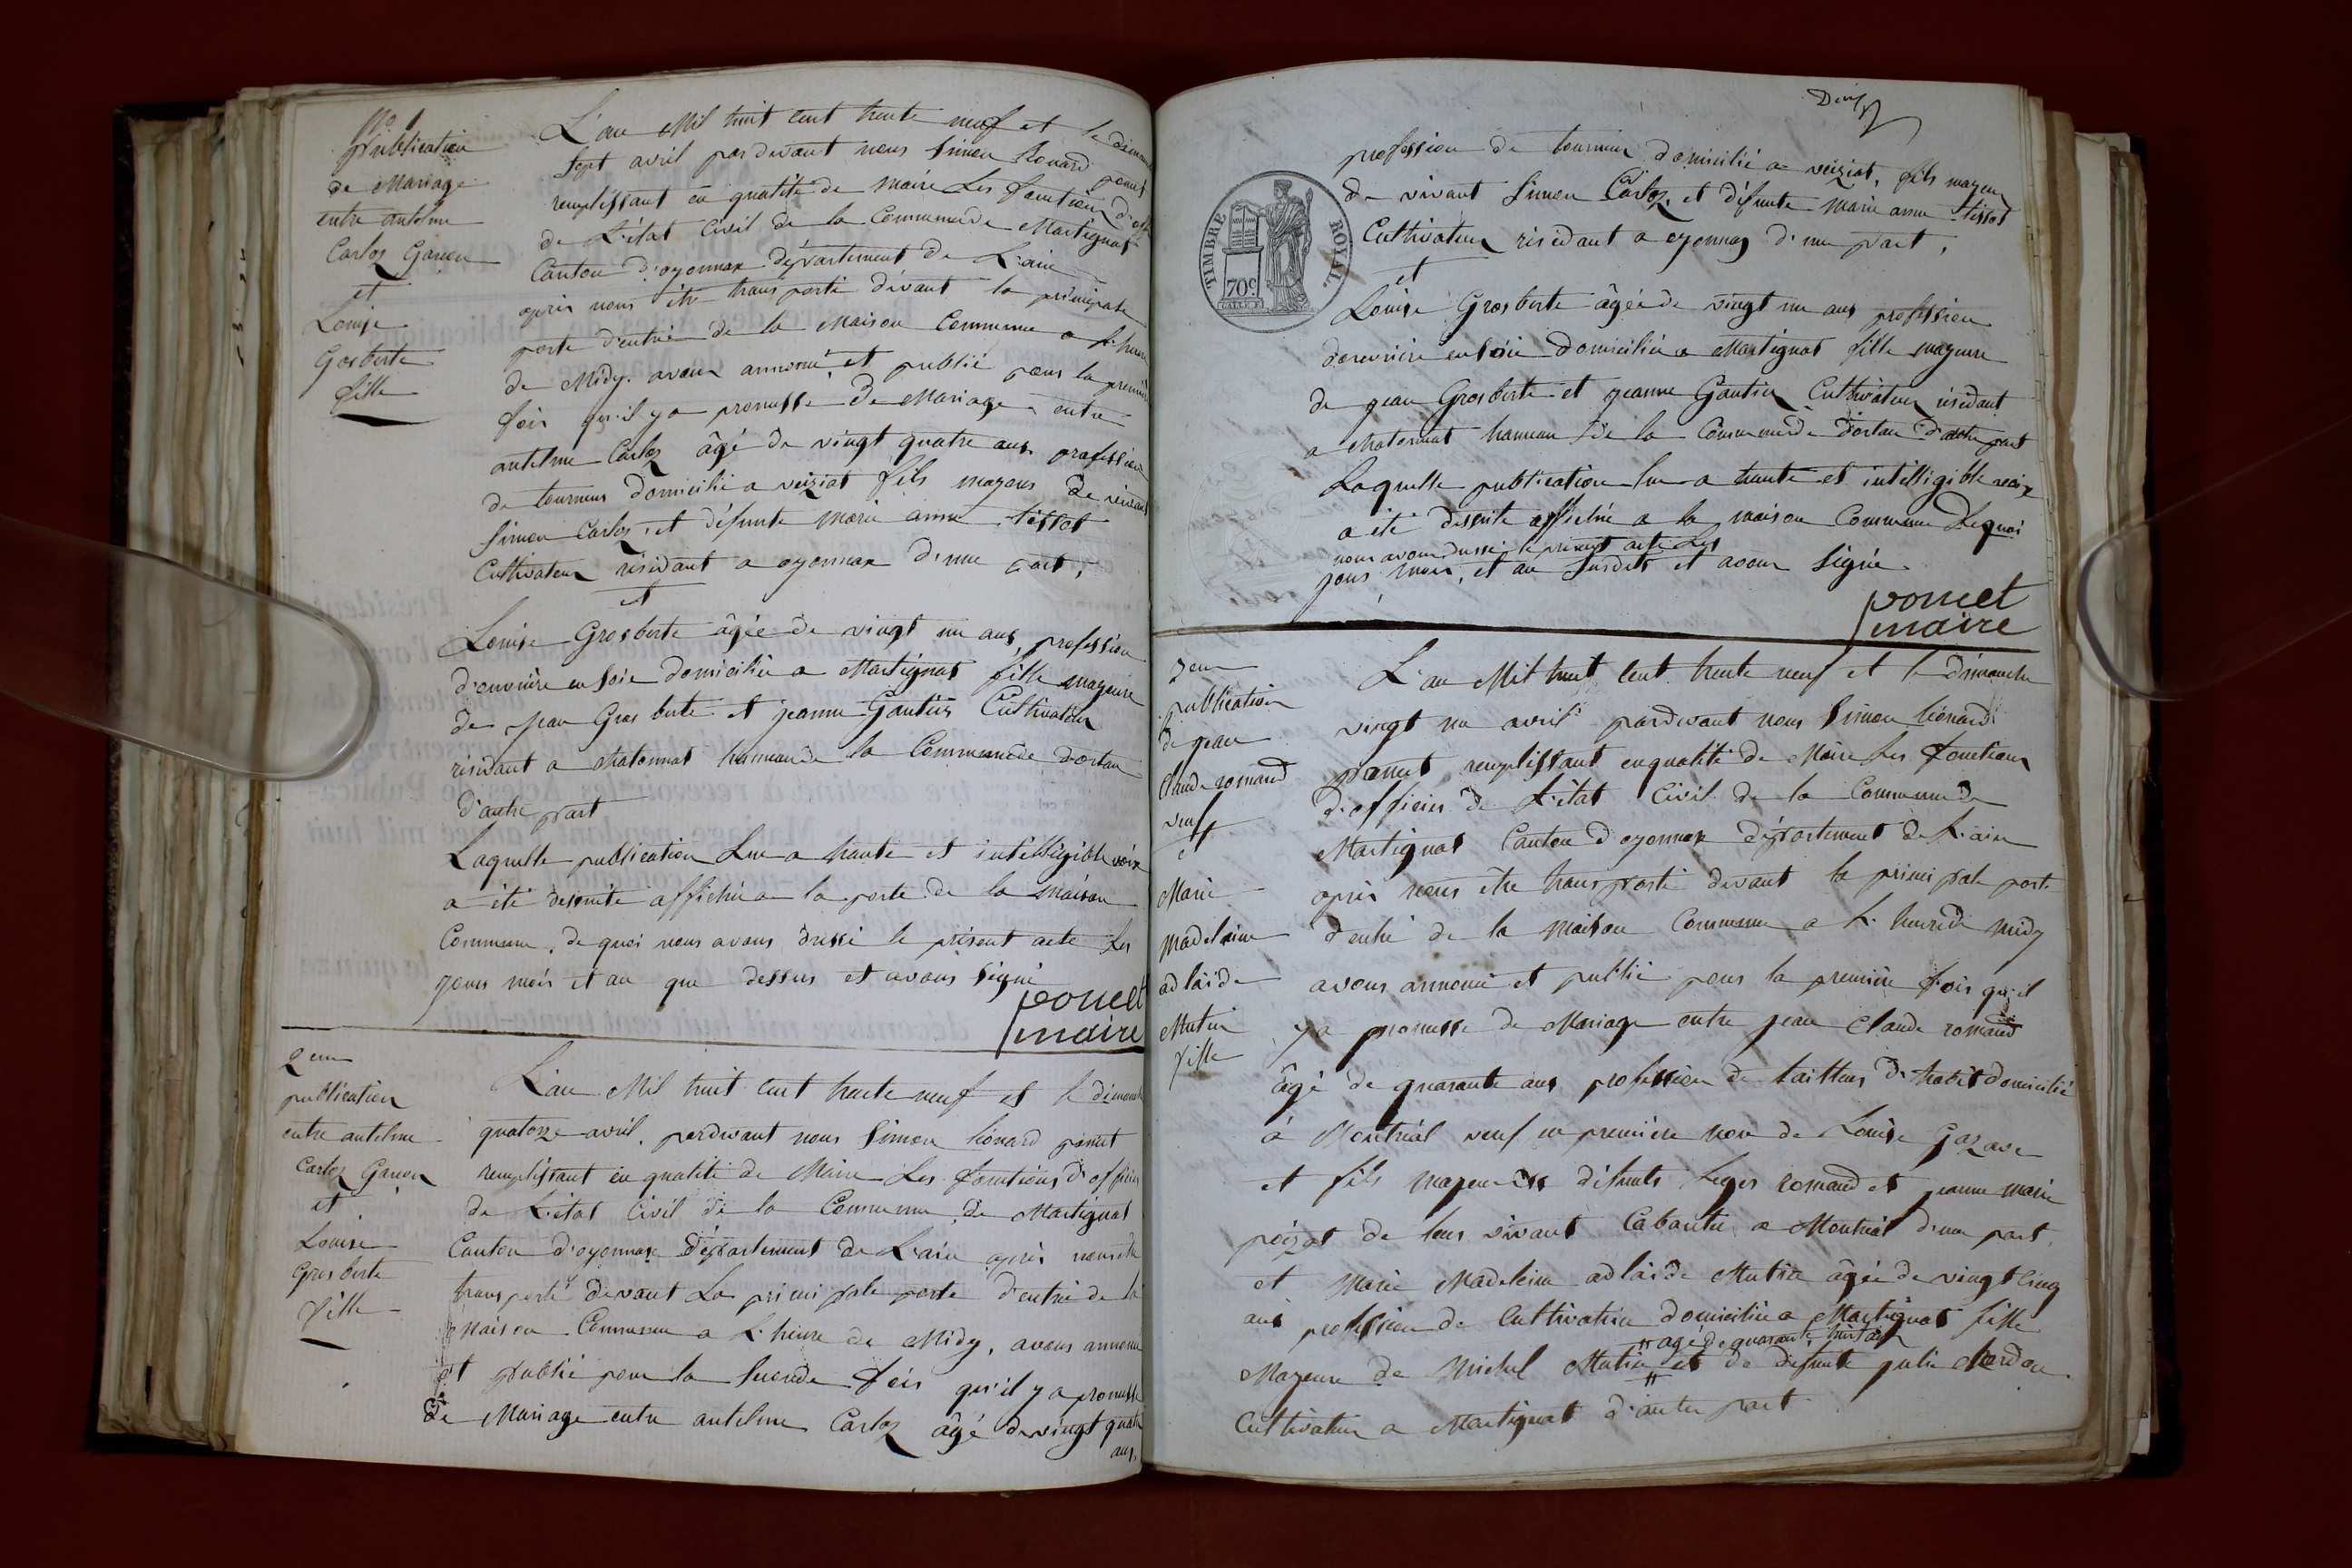 No 1
publication
de Mariage
entre antelme
Carlos Garcon
et
Louise
Grosberte
fille
L'an Mil huit cent trente neuf et le dimanche
sept avril pardevant nous Simon Léonard poncet
remplissant en qualité de maire Les fonctions d'off
de L'état Civil de la Commune de Martignat
Canton d'oyonnax département de L'ain
après nous être transporté devant la principale
porte d'entrée de la Maison Commune a L'heure
de Midy. avons annoncé et publié pour la premiere
fois qu'il y a promesse de Mariage entre
antelme Carloz âgé de vingt quatre ans profession
de tourneur domicilié a veiziat fils mayeur de vivant
Simon Carloz, et défunte Marie anne tissot
Cultivateur résidant a oyonnax d'une part,
et
Louise Grosberte âgée de vingt un ans, profession
d'ouvrière en soie domiciliée a Martignat fille mayeure
de jean Gros berte et jeanne Gautier Cultivateur
résidant a chatonnat hameau de la Commune de d'ortan
d'autre part
Laquelle publication Lue a haute et intelligible voix
a été desuite affichée a la porte de la Maison
Commune, de quoi nous avons dressé le présent acte Les
jours mois et an que dessus et avons Signé
poncet
maire
2eme
publication
entre antelme
Carloz Garcon
et
Louise
Gros berte
fille
L'an Mil huit cent trente neuf et le dimanche
quatorze avril, pardevant nous Simon Léonard poncet
remplissant en qualité de Maire Les fonctions d'officier
de L'état Civil de la Commune de Martignat
Canton d'oyonnax Département de L'ain après nous être
transporté devant La principale porte d'entrée de la
Maison Commune a L'heure de Midy, avons annoncé
et publié pour la Seconde fois qu'il y a promesse
de Mariage entre antelme Carloz âgé de vingt quatre
ans,
Deux
TIMBRE ROYAL
70c
profession de tourneur domicilié a veiziat, fils mayeur
de vivant Simon Carloz, et défunte Marie anne tissot
Cultivateur résidant a oyonnax d'une part,
et
Louise Grosberte âgée de vingt un ans profession
d'ouvrière en soie domiciliée a Martignat fille mayeure
de jean Grosberte et jeanne Gautier Cultivateur résidant
a chatonnat hameau de la Commune de d'ortan d'autre part
Laquelle publication lue a haute et intelligible voix
a été desuite affichée a la maison Commune De quoi
nous avons dressé le présent acte Les
jours mois, et an susdits et avons Signé.
poncet
maire
publication
de jean
Claude romand
veuf
et
Marie
Madelaine
adlaide
Mutin
fille
L'an Mil huit Cent trente neuf et le dimanche
vingt un avril pardevant nous Simon Léonard
poncet remplissant en qualité de Maire Les fonctions
d'officier de L'état Civil de la Commune de
Martignat Canton d'oyonnax département de L'ain
après nous être transporté devant la principale porte
d'entrée de la Maison Commune a L'heure de midy
avons annoncé et publié pour la première fois qu'il
y a promesse de Mariage entre jean Claude romand
âgé de quarante ans profession de tailleur d'habit domicilié
à Montréal veuf en première noce de Louise Gozave
et fils mayeur des défunts Leger romand et jeanne marie
poizat de leur vivant Cabantier a Montréal d'une part.
et Marie Madeleine adlaide Mutin âgée de vingt Cinq
ans profession de Cultivatrice domiciliée a Martignat fille
agé de quarante huit ans
Mayeure de Michel Mutin et de défunte julie chardon
Cultivateur a Martignat d'autre part.